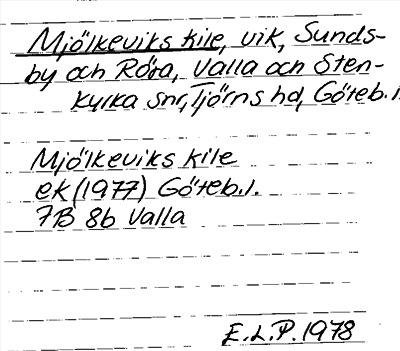 Mjölkeviks kile, vik, Sunds-
by och Röra, Valla och Sten-
kyrka snr, Tjörns hd, Göteb. l.
Mjölkeviks kile
ek (1977) Göteb. l.
7B 8b Valla
E.L.P. 1978